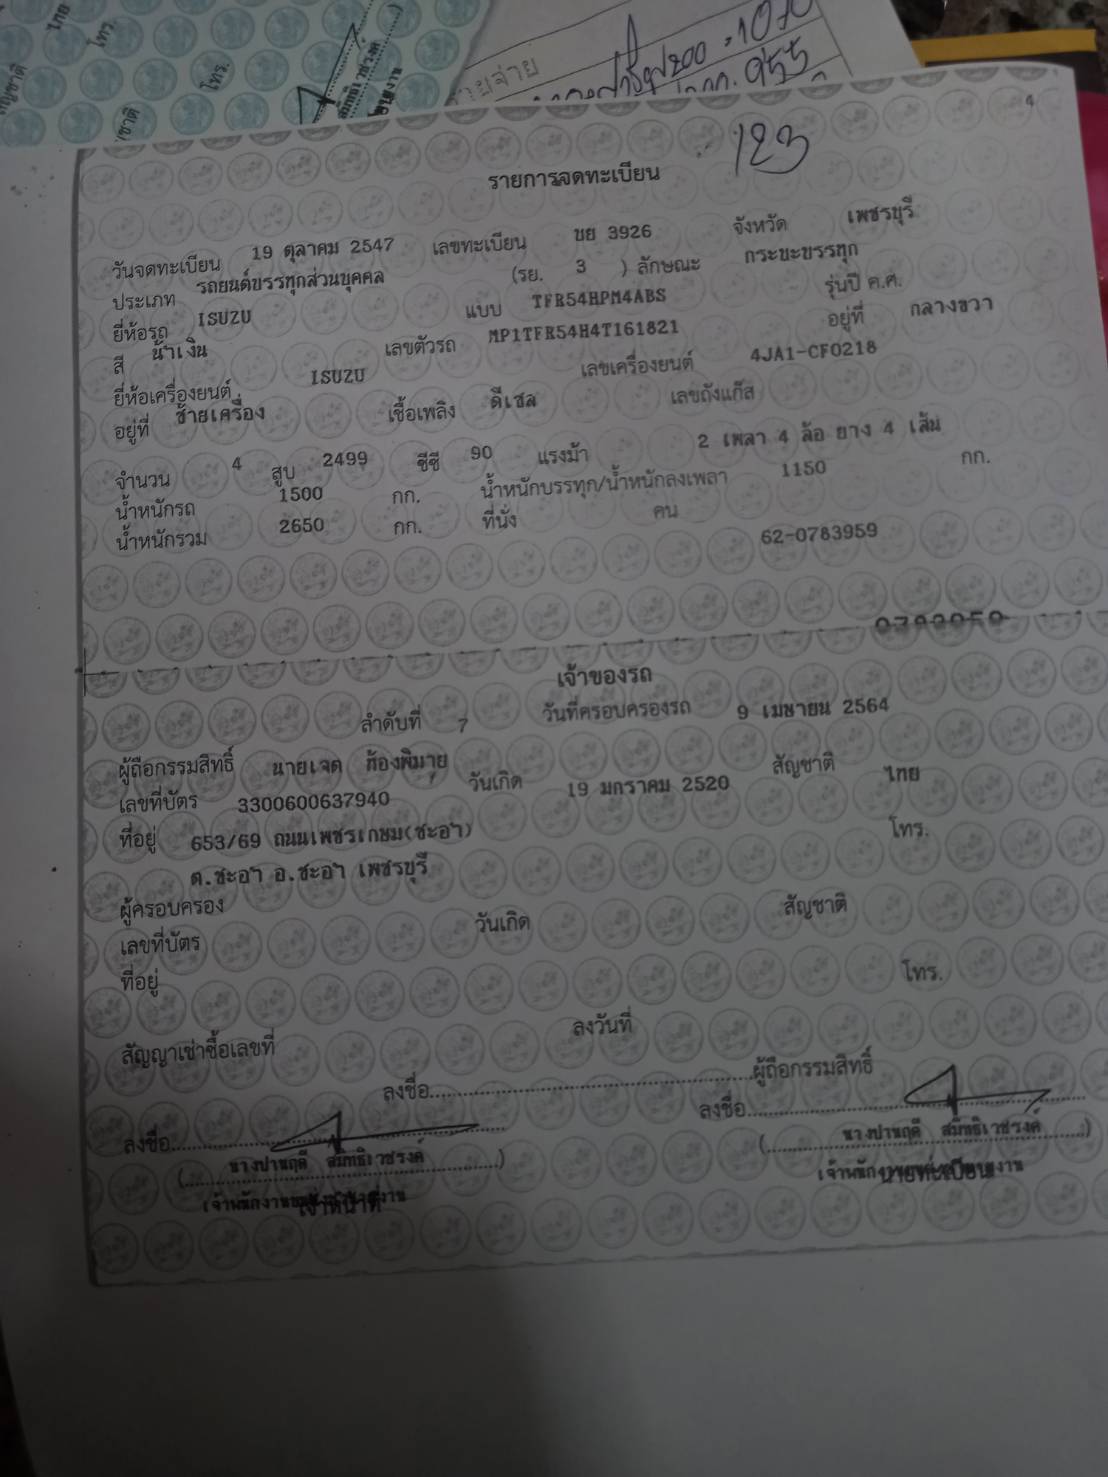 โทร.
123
4
รายการจดทะเบียน
วันจดทะเบียน 19 ตุลาคม 2547 เลขทะเบียน บย 3926 จังหวัด เพชรบุรี
ประเภท รถยนต์บรรทุกส่วนบุคคล (รย. 3 ) ลักษณะ กระบะบรรทุก
ยี่ห้อรถ ISUZU แบบ TFR54HPM4ABS รุ่นปี ค.ศ.
สี น้ำเงิน เลขตัวรถ MP1TFR54H4T161821 อยู่ที่ กลางขวา
ยี่ห้อเครื่องยนต์ ISUZU เลขเครื่องยนต์ 4JA1-CF0218
อยู่ที่ ซ้ายเครื่อง เชื้อเพลิง ดีเซล เลขถังแก๊ส
จำนวน 4 สูบ 2499 ซีซี 90 แรงม้า 2 เพลา 4 ล้อ ยาง 4 เส้น
น้ำหนักรถ 1500 กก. น้ำหนักบรรทุก/น้ำหนักลงเพลา 1150 กก.
น้ำหนักรวม 2650 กก. ที่นั่ง คน
62-0783959
เจ้าของรถ
ลำดับที่ 7 วันที่ครอบครองรถ 9 เมษายน 2564
ผู้ถือกรรมสิทธิ์ นายเจด ห้องพิมาย
เลขที่บัตร 3300600637940 วันเกิด 19 มกราคม 2520 สัญชาติ ไทย
ที่อยู่ 653/69 ถนนเพชรเกษม(ชะอำ) โทร.
ต.ชะอำ อ.ชะอำ เพชรบุรี
ผู้ครอบครอง
เลขที่บัตร วันเกิด สัญชาติ
ที่อยู่ โทร.
สัญญาเช่าซื้อเลขที่ ลงวันที่
ลงชื่อ ผู้ถือกรรมสิทธิ์
ลงชื่อ ลงชื่อ
(นางปานฤดี สมิทธิเวชรงค์) (นางปานฤดี สมิทธิเวชรงค์)
เจ้าหน้าที่ นายทะเบียน